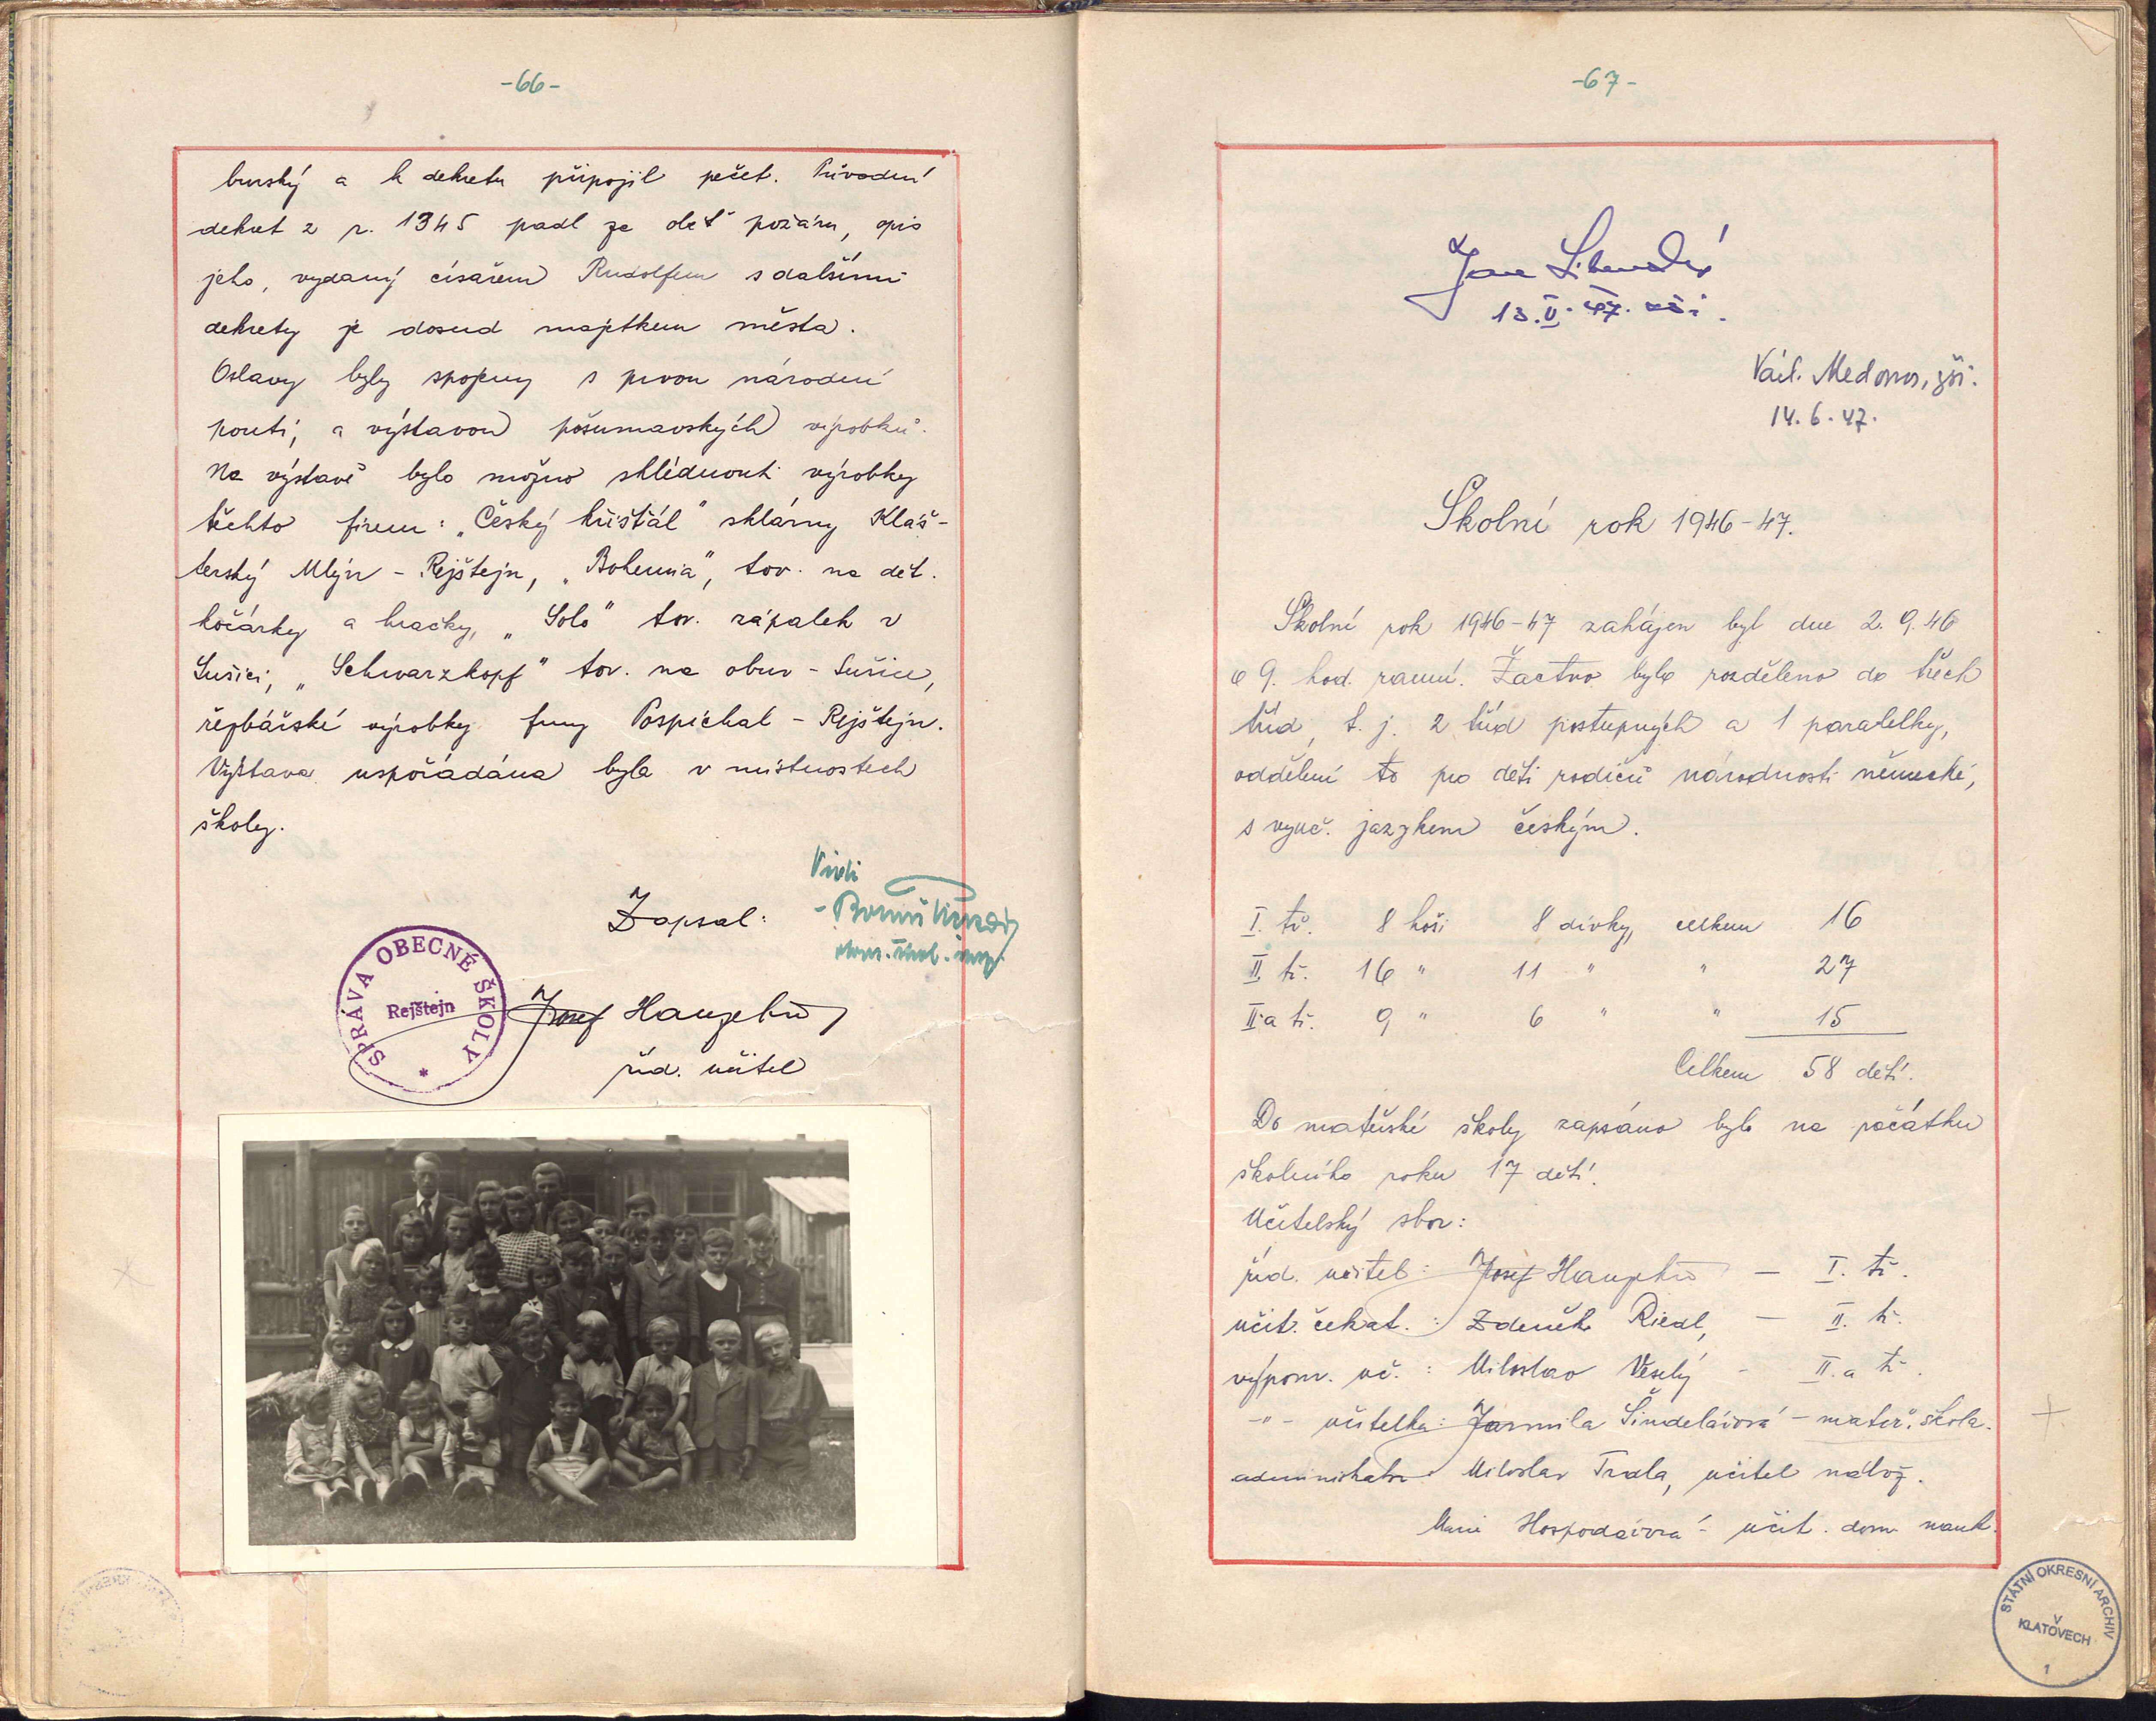 -66-
burský a k dekretu připojil pečet. Původní
dekret z r. 1345 padl za oběť požáru, opis
jeho, vydaný císařem Rudolfem s dalšími
dekrety je dosud majetkem města.
Oslavy byly spojeny s prvou národní
poutí, a výstavou pošumavských výrobků.
Na výstavě bylo možno shlédnouti výrobky
těchto firem: „Český křišťál" sklárny Kláš-
terský Mlýn - Rejštejn, „Bohemia", tov. na dět.
kočárky a hračky, „Solo" tov. zápalek v
Sušici, „Schwarzkopf" tov. na obuv - Sušice,
řezbářské výrobky fmy Pospíchal - Rejštejn.
Výstava uspořádána byla v místnostech
školy.
Viděl
Zapsal:
okres. škol. insp.
SPRÁVA OBECNÉ ŠKOLY
Rejštejn
Josef
říd. učitel
-67-
Jan
13. 47. zši.
Václ. Medonos, zši.
14. 6. 47.
Školní rok 1946-47.
Školní rok 1946-47 zahájen byl dne 2. 9. 46
o 9. hod. ranní. Žactvo bylo rozděleno do třech
tříd, t. j. 2 tříd postupných a 1 paralelky,
oddělení to pro děti rodičů národnosti německé,
s vyuč. jazykem českým.
I. tř. 8 hoši 8 dívky, celkem 16
II. tř. 16 " 11 " " 27
II.a tř. 9 " 6 " " 15
Celkem 58 dětí.
Do mateřské školy zapsáno bylo na počátku
školního roku 17 dětí.
Učitelský sbor:
říd. učitel: Josef — I. tř.
učit. čekat.: Zdeněk Riedl, — II. tř.
výpom. uč.: Miloslav Veselý - II.a tř.
-"- učitelka: Jarmila Šindelářová - mateř. škola.
administrátor Miloslav Trdla, učitel nábož.
Marie Hospodářová - učit. dom. nauk.
STÁTNÍ OKRESNÍ ARCHIV
V
KLATOVECH
1